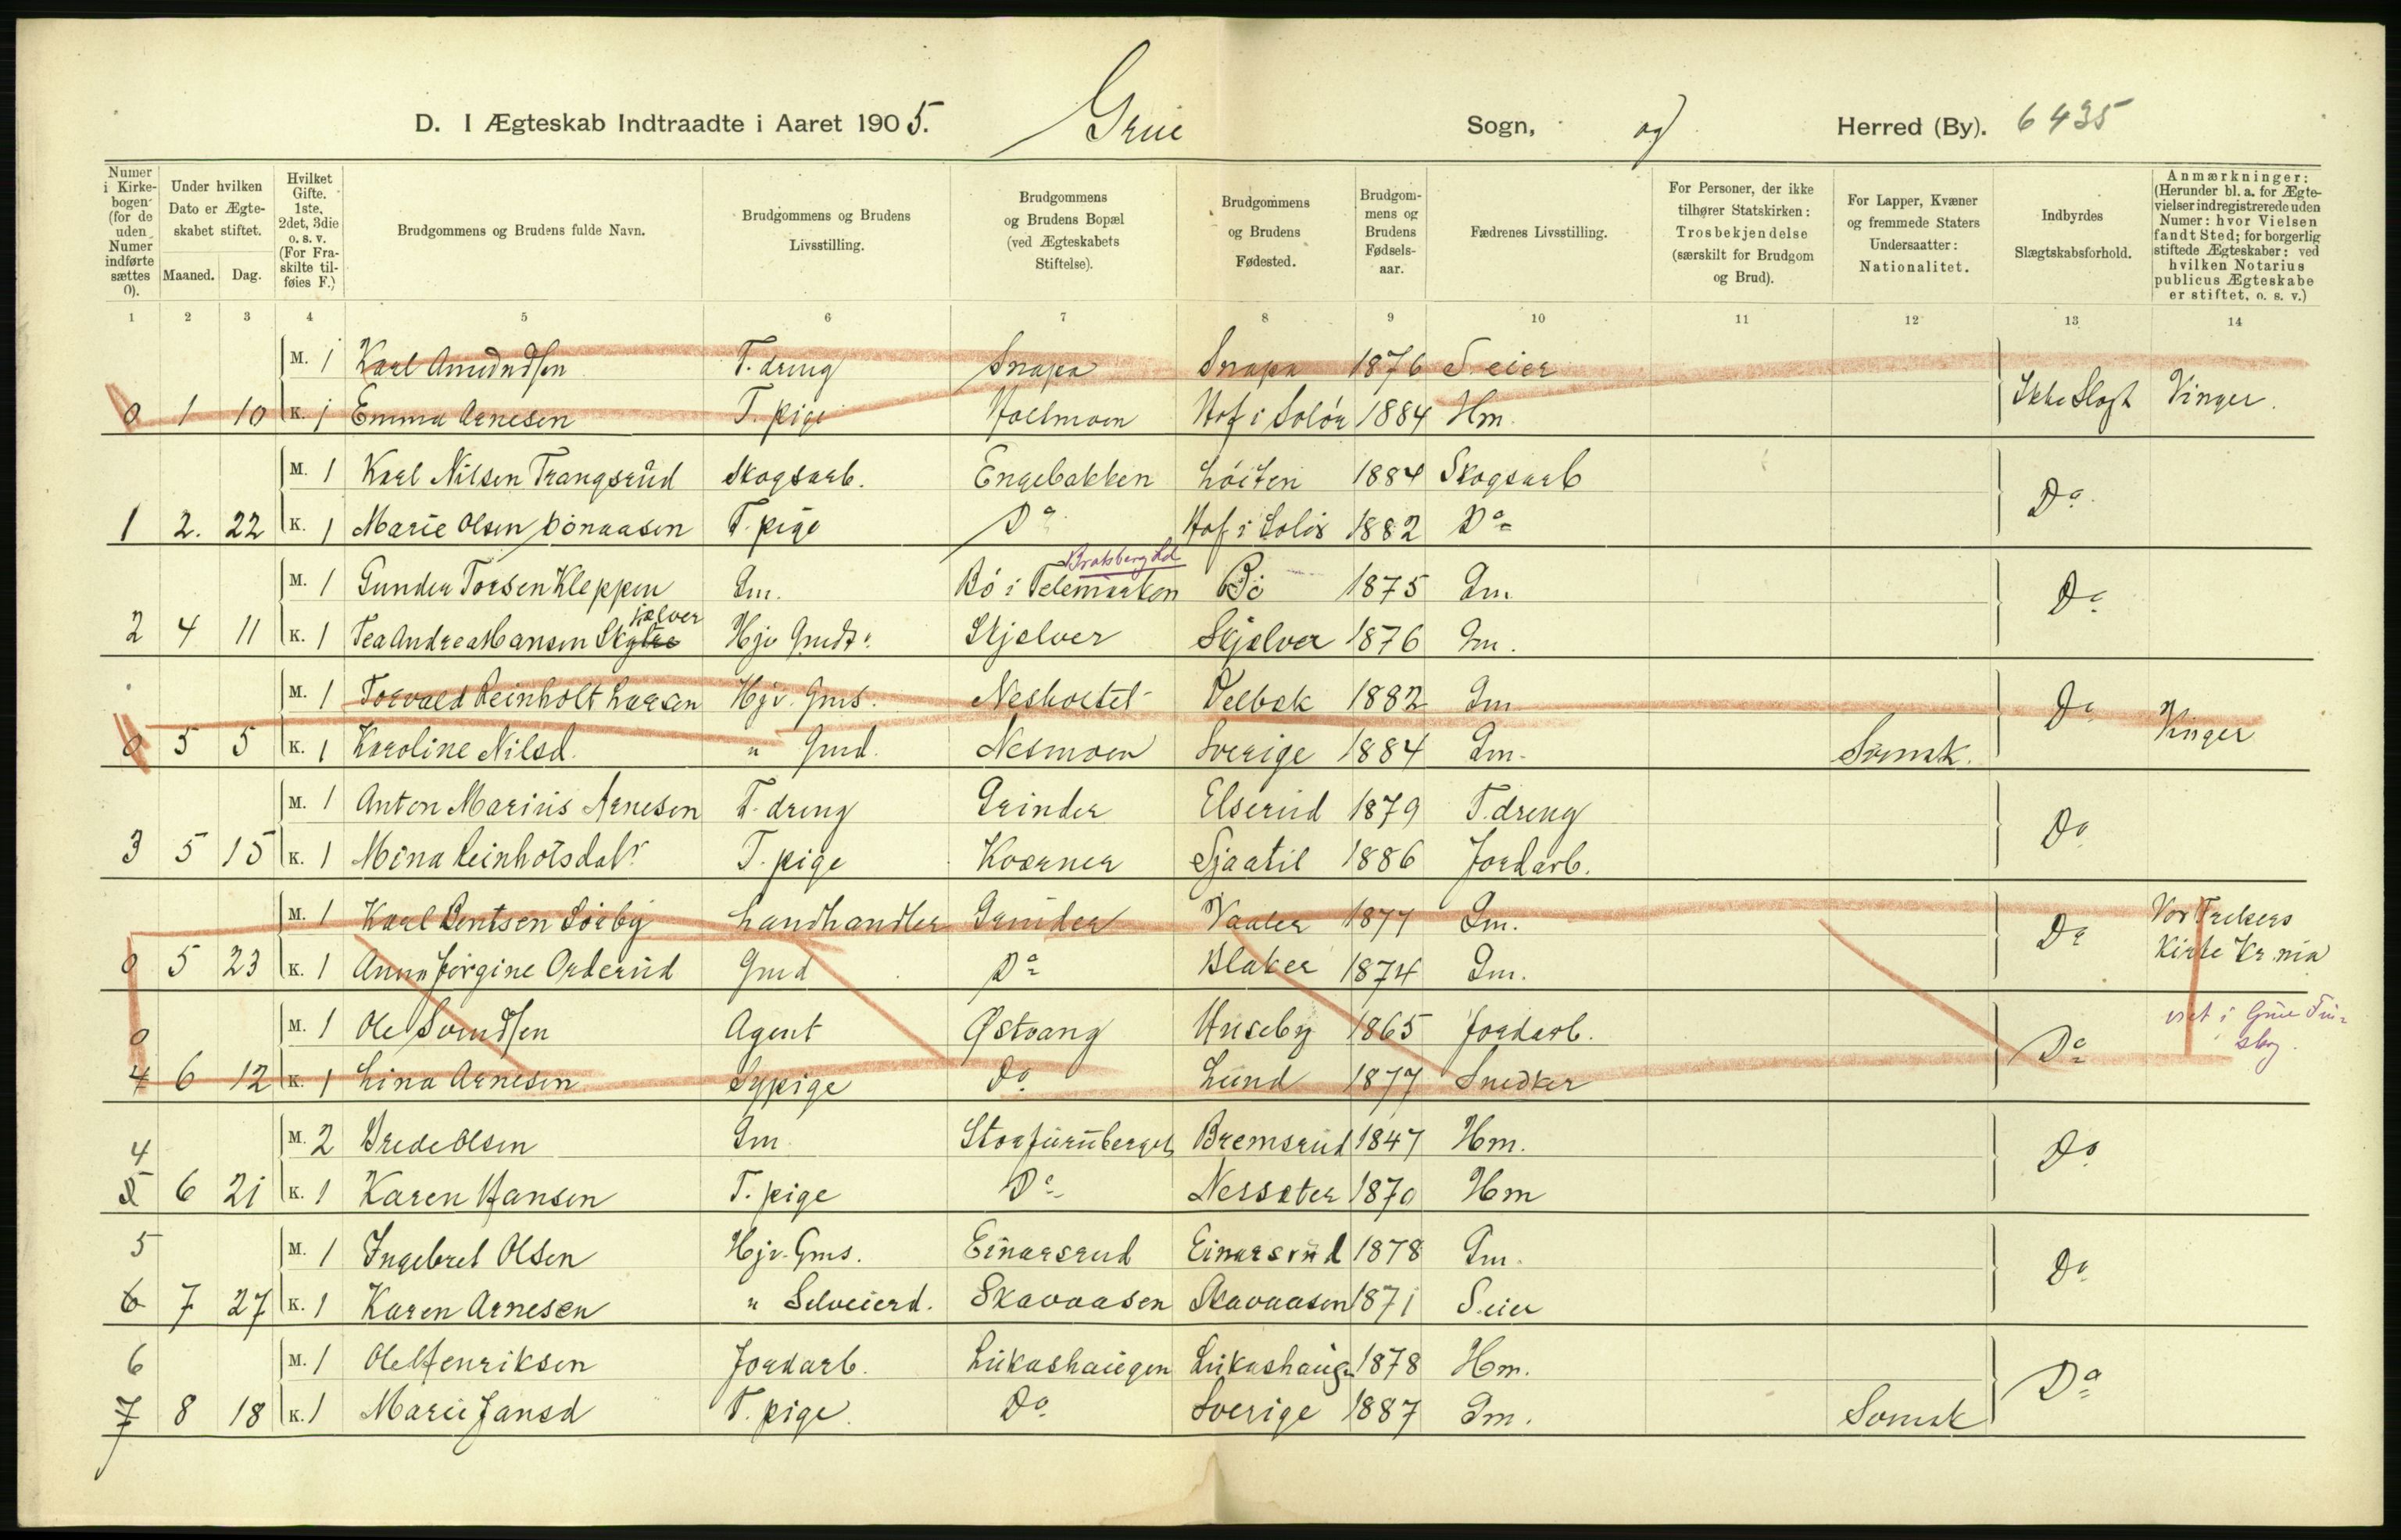 D. I Ægteskab Indtraadte i Aaret 1905. Grue Sogn, og Herred (By). 6435
Numer i Kirkebogen (for de uden Numer indførte sættes 0).
Under hvilken Dato er Ægteskabet stiftet.
Maaned. Dag.
Hvilket Gifte. 1ste, 2det, 3die o. s. v. (For Fraskilte tilføies F.)
Brudgommens og Brudens fulde Navn.
Brudgommens og Brudens Livsstilling.
Brudgommens og Brudens Bopæl (ved Ægteskabets Stiftelse).
Brudgommens og Brudens Fødested.
Brudgommens og Brudens Fødselsaar.
Fædrenes Livsstilling.
For Personer, der ikke tilhører Statskirken: Trosbekjendelse (særskilt for Brudgom og Brud).
For Lapper, Kvæner og fremmede Staters Undersaatter: Nationalitet.
Indbyrdes Slægtskabsforhold.
Anmærkninger: (Herunder bl. a. for Ægtevielser indregistrerede uden Numer: hvor Vielsen fandt Sted; for borgerlig stiftede Ægteskaber: ved hvilken Notarius publicus Ægteskabe er stiftet, o. s. v.)
1 2 3 4 5 6 7 8 9 10 11 12 13 14
M. 1 Karl Amundsen T. dreng Snapa Snapa 1876 S. eier
0 1 10 K. 1 Emma Arnesen T. pige Hof i Solør 1884 Hm. Ikke Slagt Vinger.
M. 1 Karl Nilsen Trangsrud Skogsarb. Engebakken Løiten 1884 Skogsarb
1 2. 22 K. 1 Marie Olsen T. pige Do Hof i Solør 1882 Do Do
Bratsberg
M. 1 Gunder Torsen Kleppen Gm. Bø i Telemarken Bø 1875 Gm
jælver
2 4 11 K. 1 Tea Andrea Hansen Hjv Gmdr. Skjælver Skjælver 1876 Gm. Do
M. 1 Torvald Reinholt Larsen Hjv. Gms. Velbek 1882 Gm
0 5 5 K. 1 Karoline Nilsd. " Gmd. Nesmoen Sverige 1884 Gm. Svensk. Do Vinger
M. 1 Anton Marius Arnesen T. dreng Grinder Elserud 1879 T. dreng
3 5 15 K. 1 Mina Reinholsdatr T. pige Kværner Sjaatil 1886 Jordarb. Do
M. 1 Karl Bentsen Sørby Landhandler Grinder Vaaler 1877 Gm. Vor Frelsers
0 5 23 K. 1 Anna Jørgine Orderud Gmd Do Blaker 1874 Gm. Do Kirke Kr.nia
0 M. 1 Ole Svendsen Agent Østvang Huseby 1865 Jordarb. viet i Grue Fin-
4 6 12 K. 1 Lina Arnesen Sypige Do Lund 1877 Snedker Do skog.
4 M. 2 Brede Olsen Gm. Storfuruberget Bremsrud 1847 Hm.
5 6 21 K. 1 Karen Hansen T. pige Do Nessæter 1870 Hm Do
5 M. 1 Ingebret Olsen Hjv. Gms. Einarsrud Einarsrud 1878 Gm.
6 7 27 K. 1 Karen Arnesen " Selveierd. Skavaasen Skavaasen 1871 S. eier Do
6 M. 1 Ole Henriksen Jordarb. Lukashaugen Lukashaug. 1878 Hm.
7 8 18 K. 1 Marie Jansd T. pige. Do Sverige 1887 Gm. Svensk Do